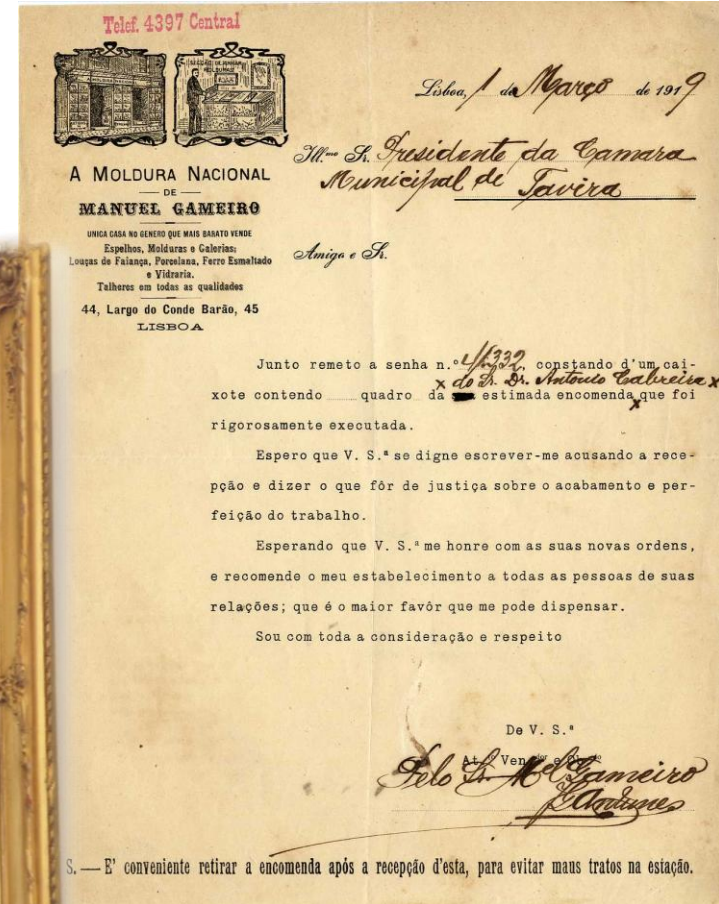 Telef. 4397 Central
A MOLDURA NACIONAL
DE
MANUEL GAMEIRO
UNICA CASA NO GENERO QUE MAIS BARATO VENDE
Espelhos, Molduras e Galerias;
Louças de Faiança, Porcelana, Ferro Esmaltado
e Vidraria.
Talheres em todas as qualidades
44, Largo do Conde Barão, 45
LISBOA
Lisboa, 1 de Março de 1919
Ill.mo Sr. Presidente da Camara
Municipal de Tavira
Amigo e Sr.
Junto remeto a senha n.º 4/6332, constando d'um cai-
x do Sr. Dr. Antonio Cabreira x
xote contendo quadro da estimada encomenda x que foi
rigorosamente executada.
Espero que V. S.ª se digne escrever-me acusando a rece-
pção e dizer o que fôr de justiça sobre o acabamento e per-
feição do trabalho.
Esperando que V. S.ª me honre com as suas novas ordens,
e recomende o meu estabelecimento a todas as pessoas de suas
relações; que é o maior favôr que me pode dispensar.
Sou com toda a consideração e respeito
De V. S.ª
At.º Ven.dor e
Pelo Sr. M.el Gameiro
Antunes
S. — E' conveniente retirar a encomenda após a recepção d'esta, para evitar maus tratos na estação.